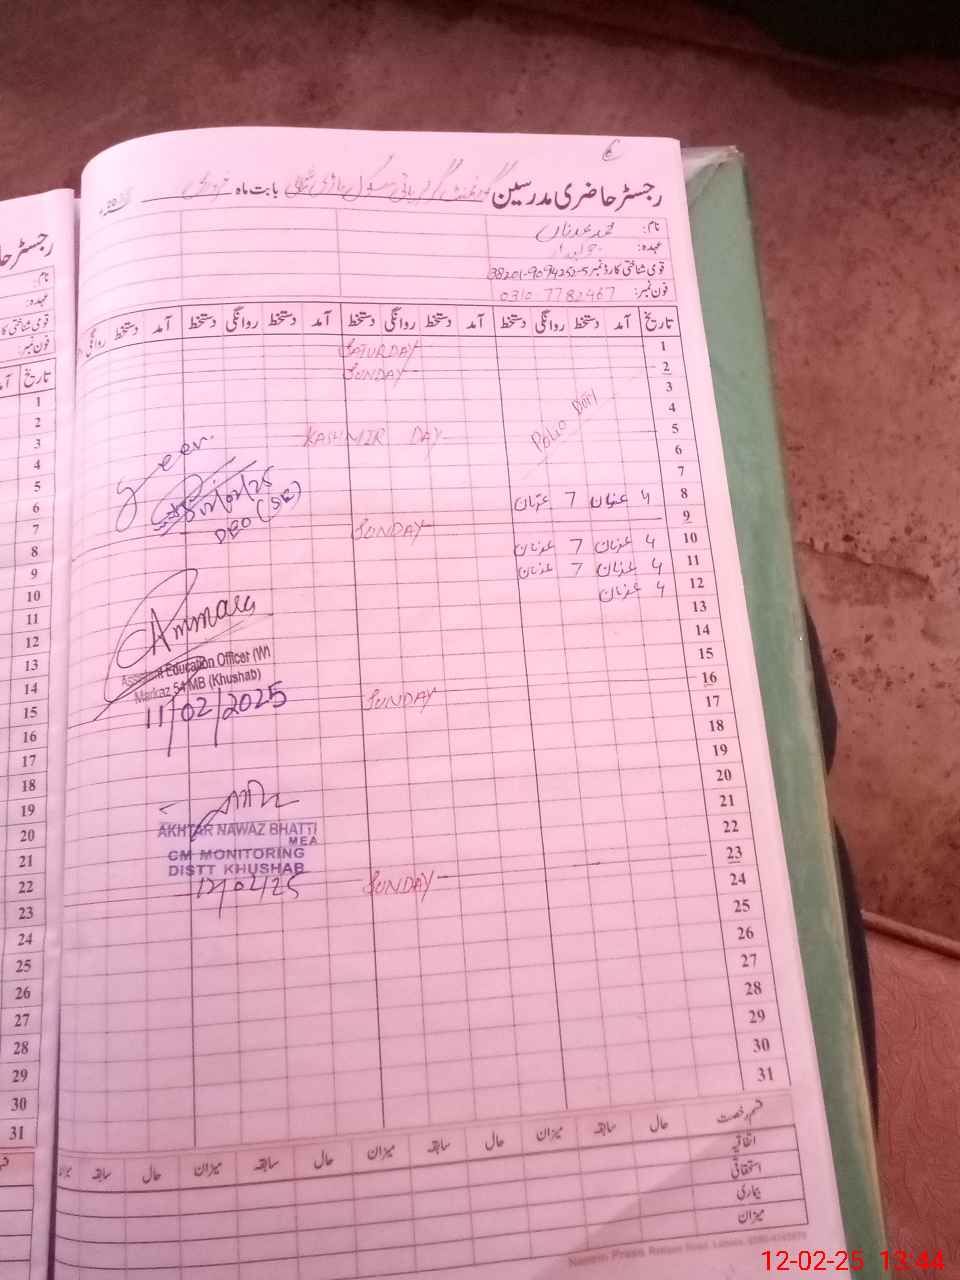 رجسٹر حاضری مدرسین گورنمنٹ گرلز ہائی سکول بابت ماہ فروری 20
نام: محمد عدنان
عہدہ:
قومی شناختی کارڈ نمبر 38201-9094252-5
فون نمبر: 0310 7782467
تاریخ آمد دستخط روانگی دستخط آمد دستخط روانگی دستخط آمد دستخط روانگی دستخط آمد دستخط روانگی
1 SATURDAY
2 SUNDAY
3
4 POLIO DUTY
5 KASHMIR DAY
6
7
8 4 عدنان 7 عدنان
9 SUNDAY
10 4 عدنان 7 عدنان
11 4 عدنان 7 عدنان
12 4 عدنان
13
14
15
16 SUNDAY
17
18
19
20
21
22
23 SUNDAY
24
25
26
27
28
29
30
31
Seen.
12/02/25
DEO (SE)
Ammara
Assistant Education Officer (W)
Markaz 54 MB (Khushab)
11/02/2025
AKHTAR NAWAZ BHATTI
MEA
CM MONITORING
DISTT KHUSHAB
12/02/25
قسم رخصت حال سابقہ میزان حال سابقہ میزان حال سابقہ میزان حال سابقہ میزان
اتفاقیہ
استحقاقی
بیماری
میزان
رجسٹر حا
نام:
عہدہ:
قومی شناختی کا
فون نمبر:
تاریخ آمد
1
2
3
4
5
6
7
8
9
10
11
12
13
14
15
16
17
18
19
20
21
22
23
24
25
26
27
28
29
30
31
12-02-25 13:44